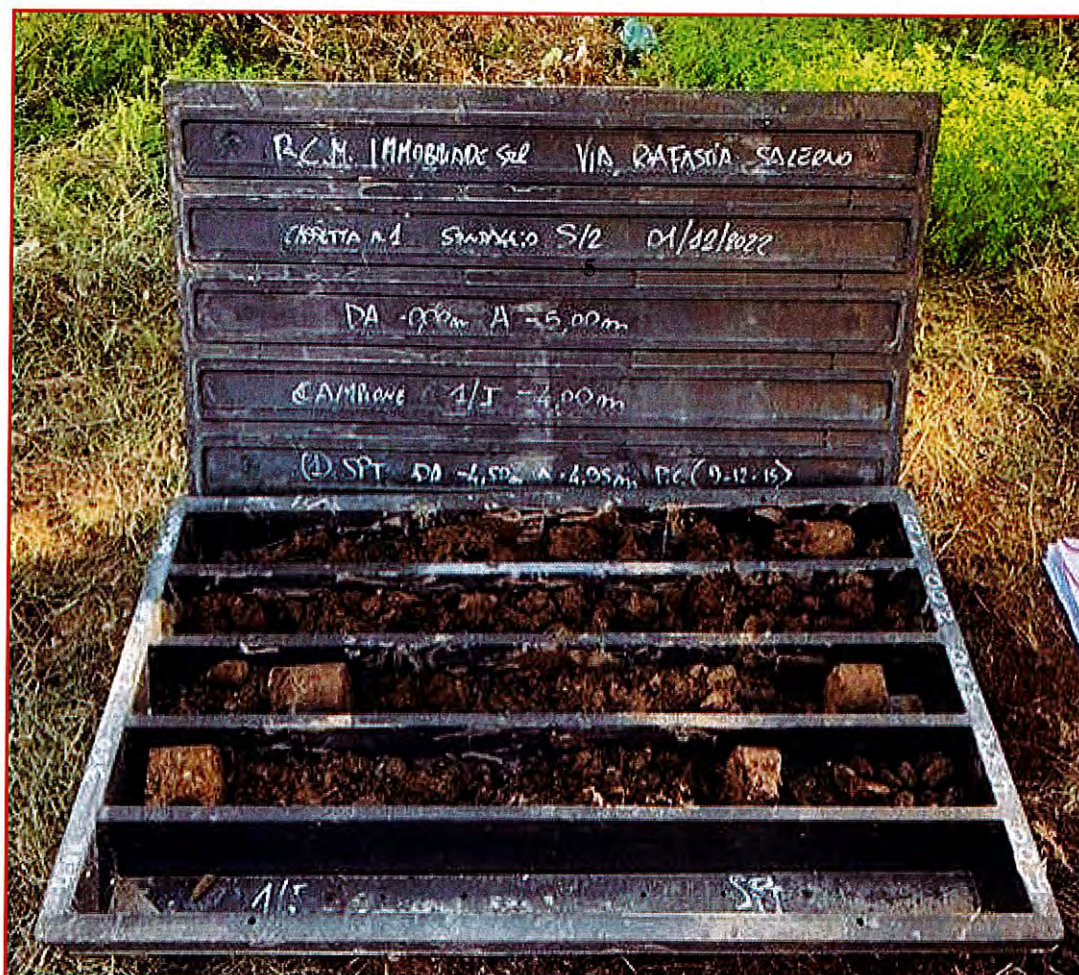 R.C.M. IMMOBILIARE SRL VIA RAFASTIA SALERNO
CASSETTA N.1 SONDAGGIO S/2 01/12/2022
S
DA -0,00m A -5,00m
CAMPIONE 1/I -4,00m
(1) SPT DA -4,50m A -4,95m P.C. (9-12-15)
1/I SPT